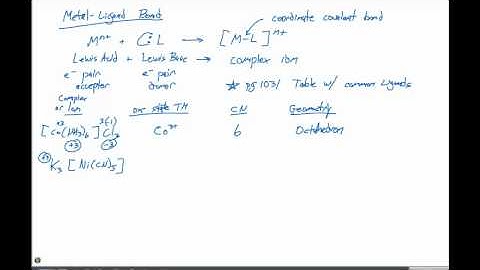 Metal-Ligand Bond
coordinate covalent bond
Mⁿ⁺ + :L → [M-L]ⁿ⁺
Lewis Acid + Lewis Base → complex ion
e⁻ pair acceptor
e⁻ pair donor
☆ pg 1031 Table w/ common Ligands
Complex or Ion
TM
CN
Geometry
+3
3(-1)
[Co(NH₃)₆]Cl₃
Co³⁺
6
Octahedron
+3
-3
+3
K₃[Ni(CN)₅]